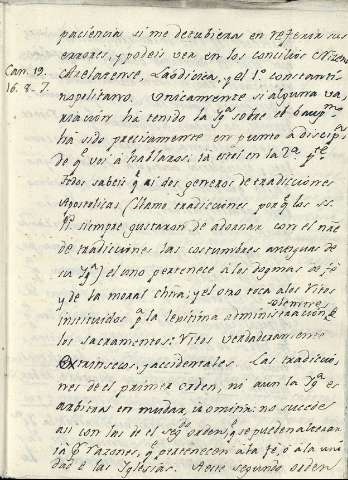 paciencia si me detubiera en referir sus
errores, y podeis ver en los concilios Niceno
Can. 19.
16. 8. 7.
Arelatense, Laodicea, y el 1.º constanti
nopolitano. Unicamente si alguna va
riacion hà tenido la Ygª sobre el baugmo
hà sido precisamente en punto a discip
de q.e voi à hablaros; ia estoi en la 2.ª pte.
Todos sabeis q.e ai dos generos de tradicciones
Apostolicas (llamo tradicciones porq.e los SS.
PP. siempre gustaron de adornar con el nñe
de tradicciones las costumbres antiguas de
la Ygª) el uno pertenece à los dogmas de fè
y de la moral chña; y el otro toca à los ritos
solemnes
instituidos pª la legitima administracion de
los sacramentos: ritos verdaderamente
extrinsecos, y accidentales. Las tradiccio
nes de el primer orden, ni aun la Ygª es
arbitra en mudar, ia omitir: no succede
asi con las de el segº orden, q.e se pueden alterar
ià pr razones, q.e pertenecen à la fe, ò à la uni
dad de las Iglesias. A este segundo orden